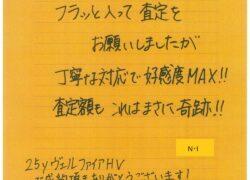 フラッと入って査定を
お願いしましたが
丁寧な対応で好感度MAX!!
査定額もこれはまさに奇跡!!
N-1
25yヴェルファイアHV
ご成約頂きありがとうございます!